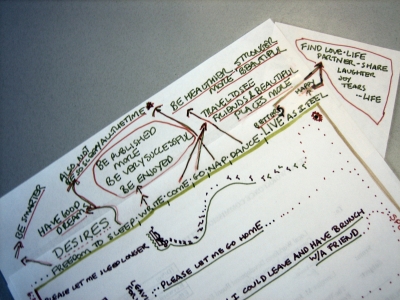 FIND LOVE · LIFE
PARTNER - SHARE
LAUGHTER
JOY
TEARS
... LIFE
BE HEALTHIER STRONGER
MORE BEAUTIFUL
TRAVEL TO SEE
FRIENDS & BEAUTIFUL
PLACES MORE
HAPPY
ALL THE TIME
BE PUBLISHED
MORE
BE VERY SUCCESSFUL
BE ENJOYED
BE SMARTER
HAVE GOOD
DREAMS
DESIRES
FREEDOM TO SLEEP, WRITE, COME, GO, NAP, DANCE, LIVE AS I FEEL
PLEASE LET ME SLEEP LONGER
... PLEASE LET ME GO HOME ...
I COULD LEAVE AND HAVE BRUNCH
W/A FRIEND